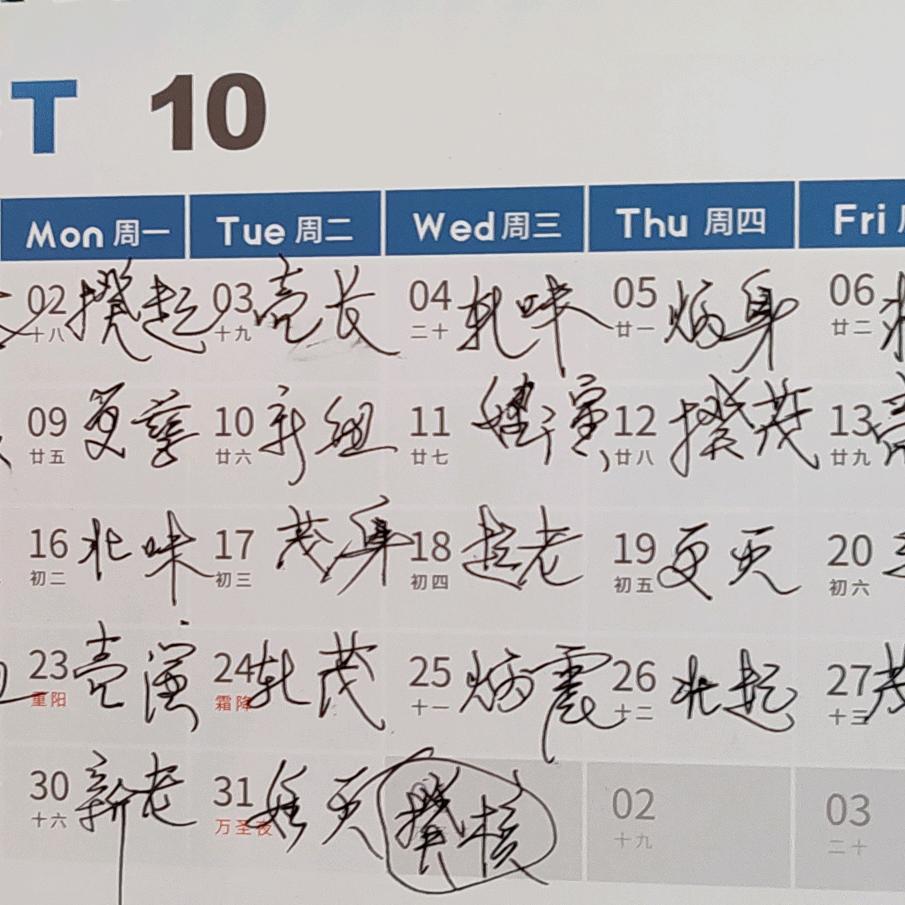 T 10
Mon 周一 Tue 周二 Wed 周三 Thu 周四 Fri
02 揆起 03 亮长 04 轧味 05 炳身 06
十八 十九 二十 廿一 廿二
09 10 新组 11 12 揆茂 13
廿五 廿六 廿七 廿八 廿九
16 北味 17 茂身 18 起老 19 更天 20
初二 初三 初四 初五 初六
23 亮 24 轧茂 25 炳震 26 北起 27 茂
重阳 霜降 十一 十二 十三
30 新老 31 02 03
十六 万圣夜 十九 二十